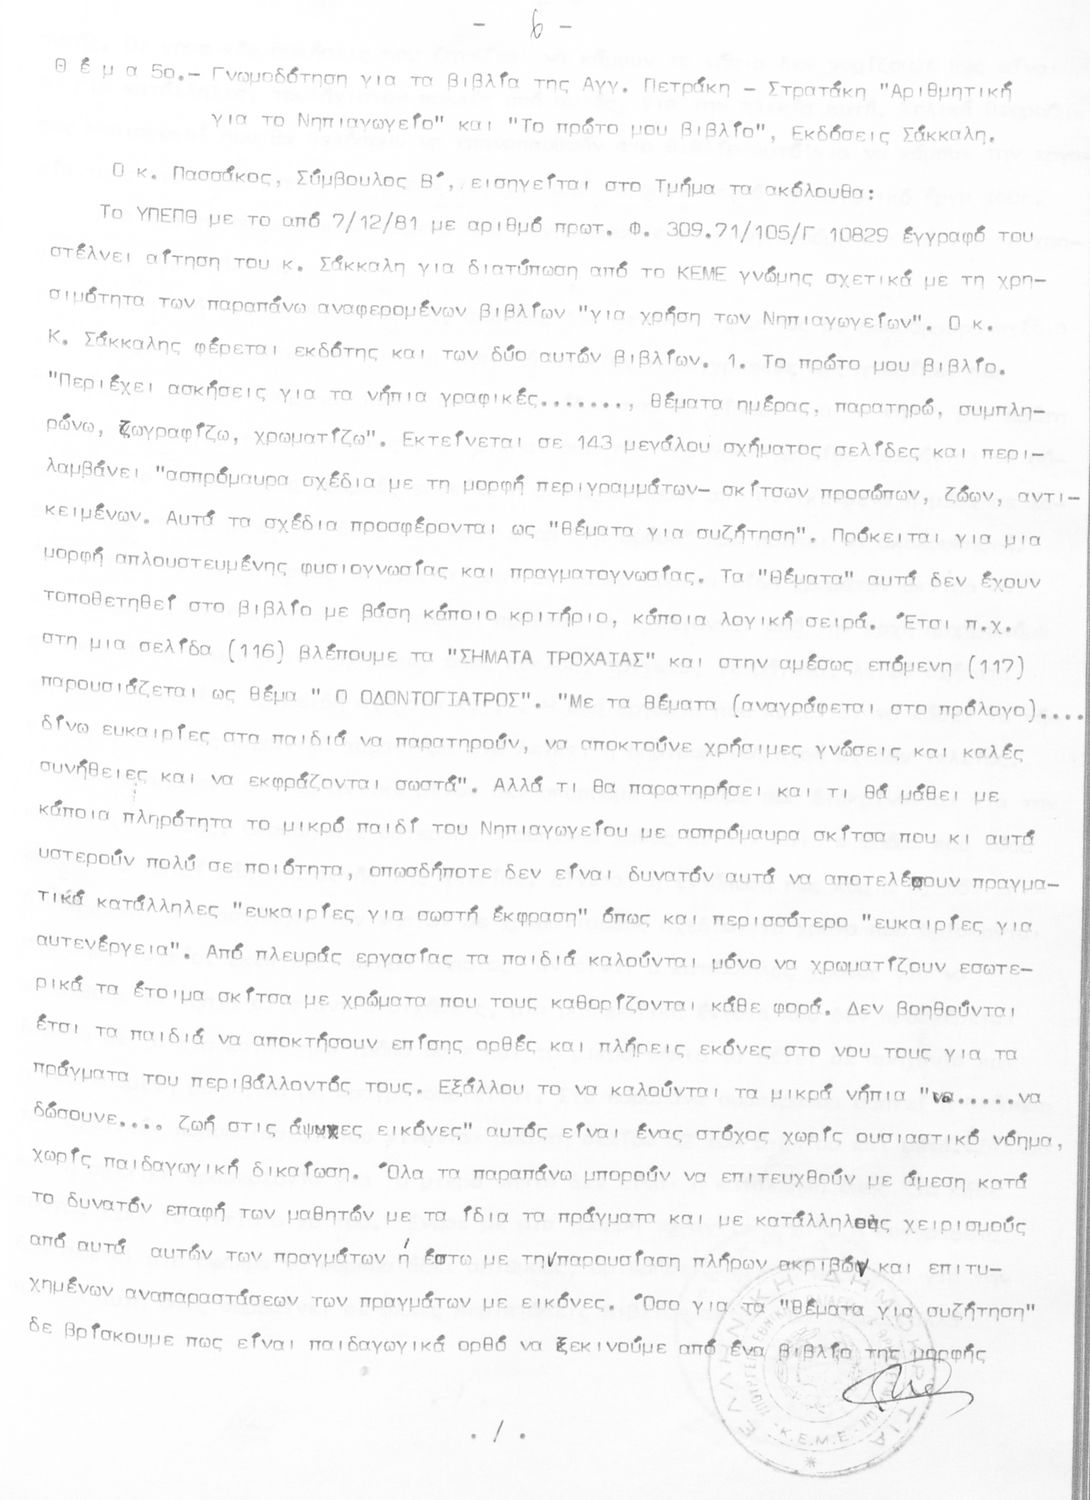 - 6 -
Θ έ μ α 5ο.- Γνωμοδότηση για τα βιβλία της Αγγ. Πετράκη - Στρατάκη "Αριθμητική
για το Νηπιαγωγείο" και "Το πρώτο μου βιβλίο", Εκδόσεις Σάκκαλη.
Ο κ. Πασσάκος, Σύμβουλος Β΄, εισηγείται στο Τμήμα τα ακόλουθα:
Το ΥΠΕΠΘ με το από 7/12/81 με αριθμό πρωτ. Φ. 309.71/105/Γ 10829 έγγραφό του
στέλνει αίτηση του κ. Σάκκαλη για διατύπωση από το ΚΕΜΕ γνώμης σχετικά με τη χρη-
σιμότητα των παραπάνω αναφερομένων βιβλίων "για χρήση των Νηπιαγωγείων". Ο κ.
Κ. Σάκκαλης φέρεται εκδότης και των δύο αυτών βιβλίων. 1. Το πρώτο μου βιβλίο.
"Περιέχει ασκήσεις για τα νήπια γραφικές......., θέματα ημέρας, παρατηρώ, συμπλη-
ρώνω, ζωγραφίζω, χρωματίζω". Εκτείνεται σε 143 μεγάλου σχήματος σελίδες και περι-
λαμβάνει "ασπρόμαυρα σχέδια με τη μορφή περιγραμμάτων- σκίτσων προσώπων, ζώων, αντι-
κειμένων. Αυτά τα σχέδια προσφέρονται ως "θέματα για συζήτηση". Πρόκειται για μια
μορφή απλουστευμένης φυσιογνωσίας και πραγματογνωσίας. Τα "θέματα" αυτά δεν έχουν
τοποθετηθεί στο βιβλίο με βάση κάποιο κριτήριο, κάποια λογική σειρά. Έτσι π.χ.
στη μια σελίδα (116) βλέπουμε τα "ΣΗΜΑΤΑ ΤΡΟΧΑΙΑΣ" και στην αμέσως επόμενη (117)
παρουσιάζεται ως θέμα " Ο ΟΔΟΝΤΟΓΙΑΤΡΟΣ". "Με τα θέματα (αναγράφεται στο πρόλογο)....
δίνω ευκαιρίες στα παιδιά να παρατηρούν, να αποκτούνε χρήσιμες γνώσεις και καλές
συνήθειες και να εκφράζονται σωστά". Αλλά τι θα παρατηρήσει και τι θά μάθει με
κάποια πληρότητα το μικρό παιδί του Νηπιαγωγείου με ασπρόμαυρα σκίτσα που κι αυτά
υστερούν πολύ σε ποιότητα, οπωσδήποτε δεν είναι δυνατόν αυτά να αποτελέσουν πραγμα-
τικά κατάλληλες "ευκαιρίες για σωστή έκφραση" όπως και περισσότερο "ευκαιρίες για
αυτενέργεια". Από πλευράς εργασίας τα παιδιά καλούνται μόνο να χρωματίζουν εσωτε-
ρικά τα έτοιμα σκίτσα με χρώματα που τους καθορίζονται κάθε φορά. Δεν βοηθούνται
έτσι τα παιδιά να αποκτήσουν επίσης ορθές και πλήρεις εκόνες στο νου τους για τα
πράγματα του περιβάλλοντός τους. Εξάλλου το να καλούνται τα μικρά νήπια "να.....να
δώσουνε.... ζωή στις άψυχες εικόνες" αυτός είναι ένας στόχος χωρίς ουσιαστικό νόημα,
χωρίς παιδαγωγική δικαίωση. Όλα τα παραπάνω μπορούν να επιτευχθούν με άμεση κατά
το δυνατόν επαφή των μαθητών με τα ίδια τα πράγματα και με κατάλληλους χειρισμούς
από αυτά αυτών των πραγμάτων ή έστω με την παρουσίαση πλήρων ακριβών και επιτυ-
χημένων αναπαραστάσεων των πραγμάτων με εικόνες. Όσο για τα "θέματα για συζήτηση"
δε βρίσκουμε πως είναι παιδαγωγικά ορθό να ξεκινούμε από ένα βιβλίο της μορφής
ΕΛΛΗΝΙΚΗ ΔΗΜΟΚΡΑΤΙΑ
Κ.Ε.Μ.Ε.
. / .